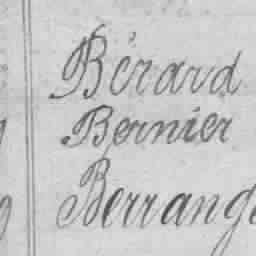 Bérard
Bernier
Berrange